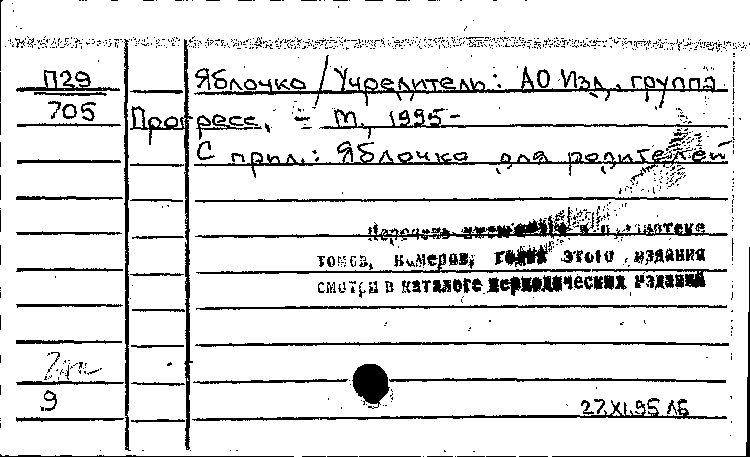 П29
705
Яблочко / Учредитель: АО Изд. группа
Прогресс. - М., 1995-
С прил.: Яблочко для родителей
Перечень имеющихся в библиотеке
томов, номеров, годов этого издания
смотри в каталоге периодических изданий
9
27.XI.95 ЛБ